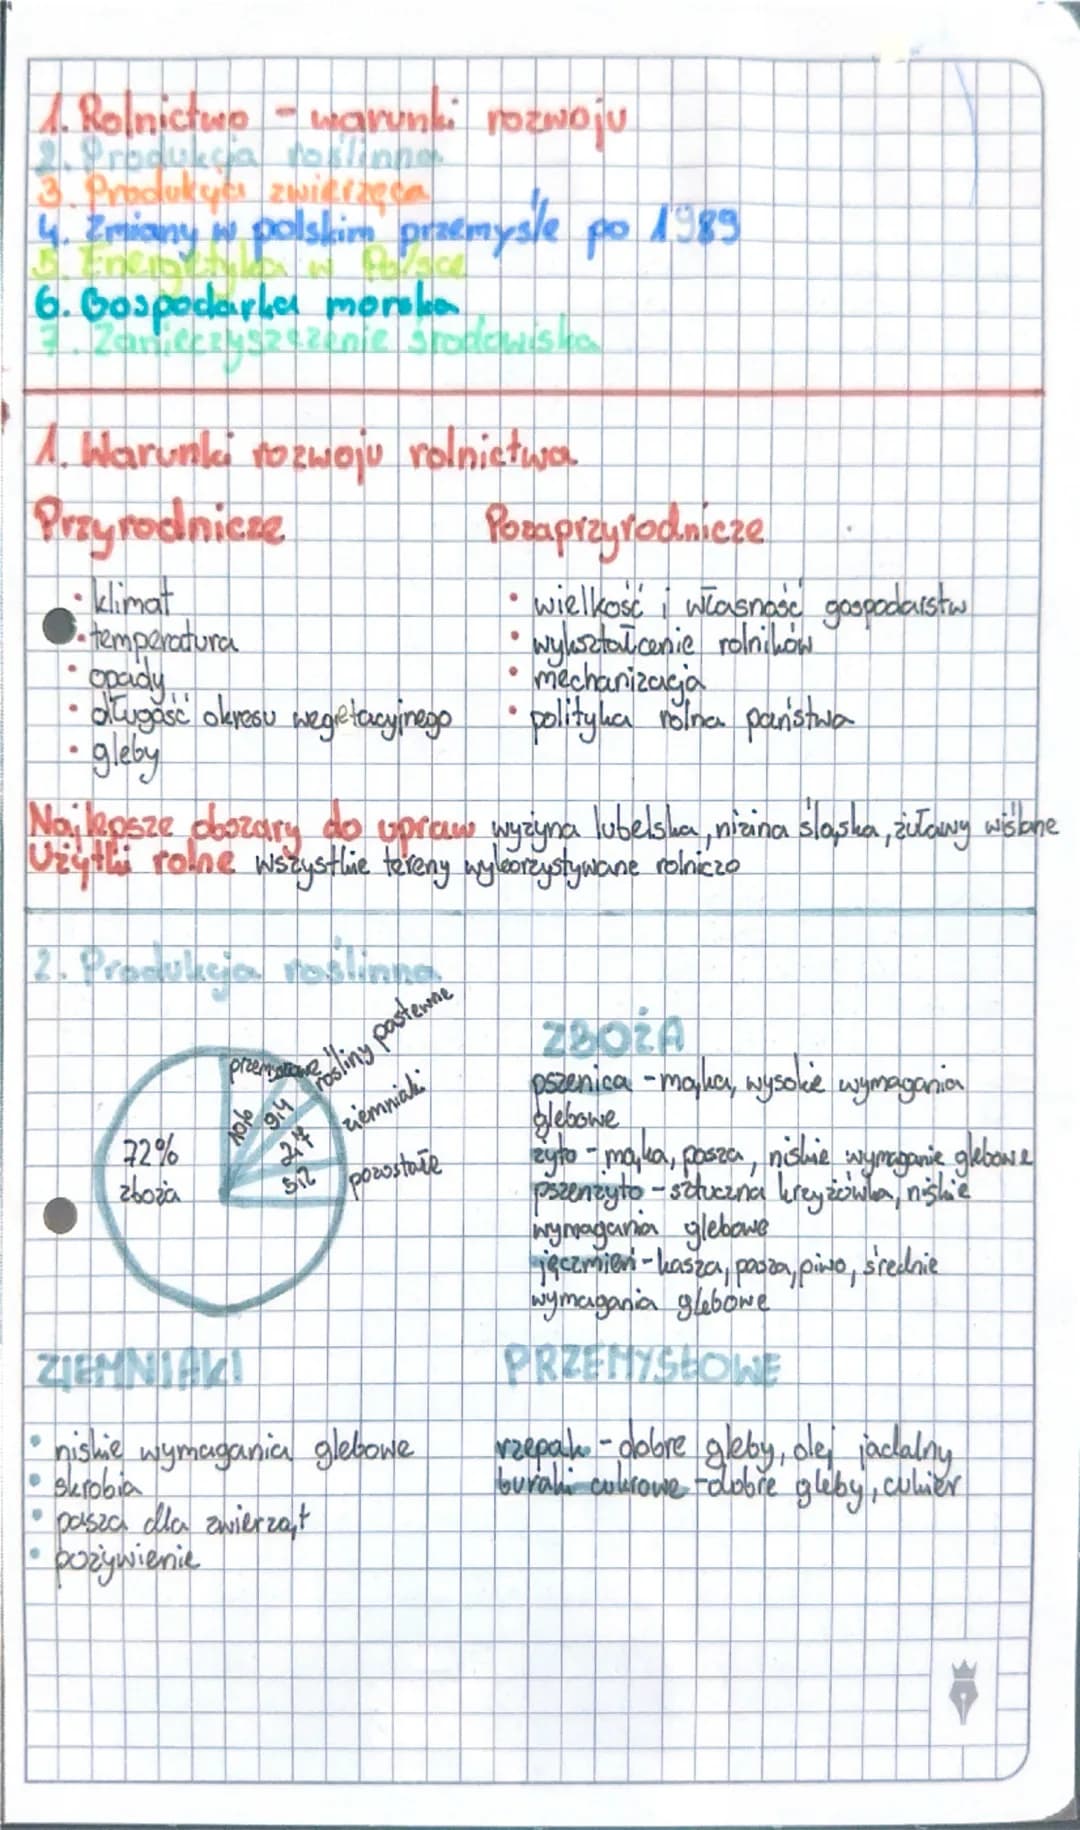 1. Rolnictwo - warunki rozwoju
2. Produkcja roślinna
3. Produkcja zwierzęca
4. Zmiany w polskim przemyśle po 1989
5. Energetyka w Polsce
6. Gospodarka morska
7. Zanieczyszczenie środowiska
1. Warunki rozwoju rolnictwa
Przyrodnicze
• klimat
• temperatura
• opady
• długość okresu wegietacyjnego
• gleby
Pozaprzyrodnicze
• wielkość i własność gospodarstw
• wykształcenie rolników
• mechanizacja
• polityka rolna państwa
Najlepsze obszary do upraw wyżyna lubelska, nizina śląska, żuławy wiślane
Użytki rolne wszystkie tereny wykorzystywane rolniczo
2. Produkcja roślinna
72%
zboża
przemysłowe
10%
rośliny pastewne
9,4
ziemniaki
2,7
pozostałe
5,2
ZBOŻA
pszenica - mąka, wysokie wymagania
glebowe
żyto - mąka, pasza, niskie wymaganie glebowe
pszenżyto - sztuczna krzyżówka, niskie
wymagania glebowe
jęczmień - kasza, pasza, piwo, średnie
wymagania glebowe
ZIEMNIAKI
• niskie wymagania glebowe
• skrobia
• pasza dla zwierząt
• pożywienie
PRZEMYSŁOWE
rzepak - dobre gleby, olej jadalny
buraki cukrowe - dobre gleby, cukier